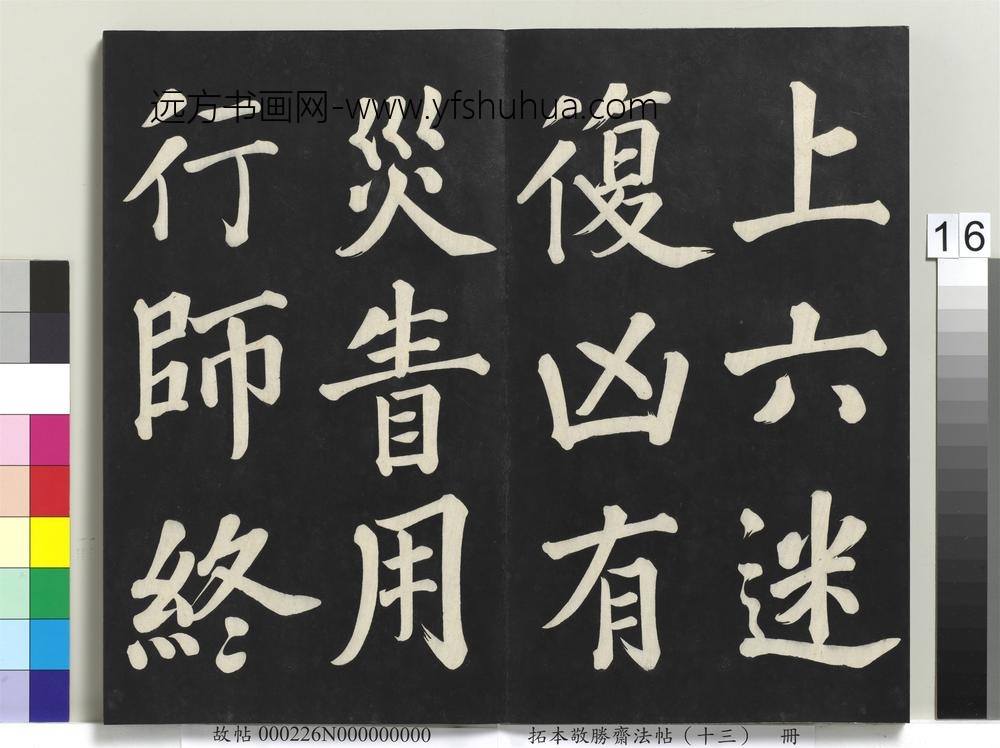 远方书画网-www.yfshuhua.com
上六迷
復凶有
災眚用
行師終
16
故帖 000226N000000000
拓本敬勝齋法帖（十三） 冊